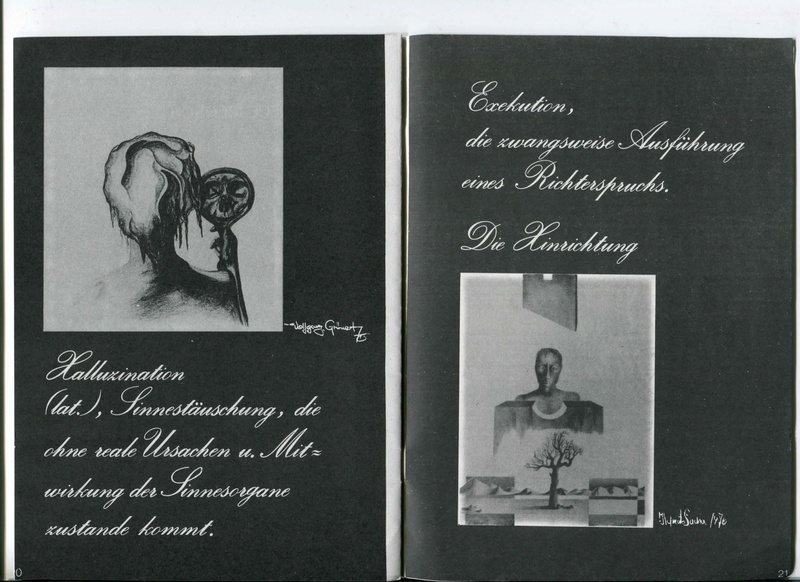 Wolfgang Grünert 75
Halluzination
(lat.), Sinnestäuschung, die
ohne reale Ursachen u. Mit=
wirkung der Sinnesorgane
zustande kommt.
0
Exekution,
die zwangsweise Ausführung
eines Richterspruchs.
Die Hinrichtung
21